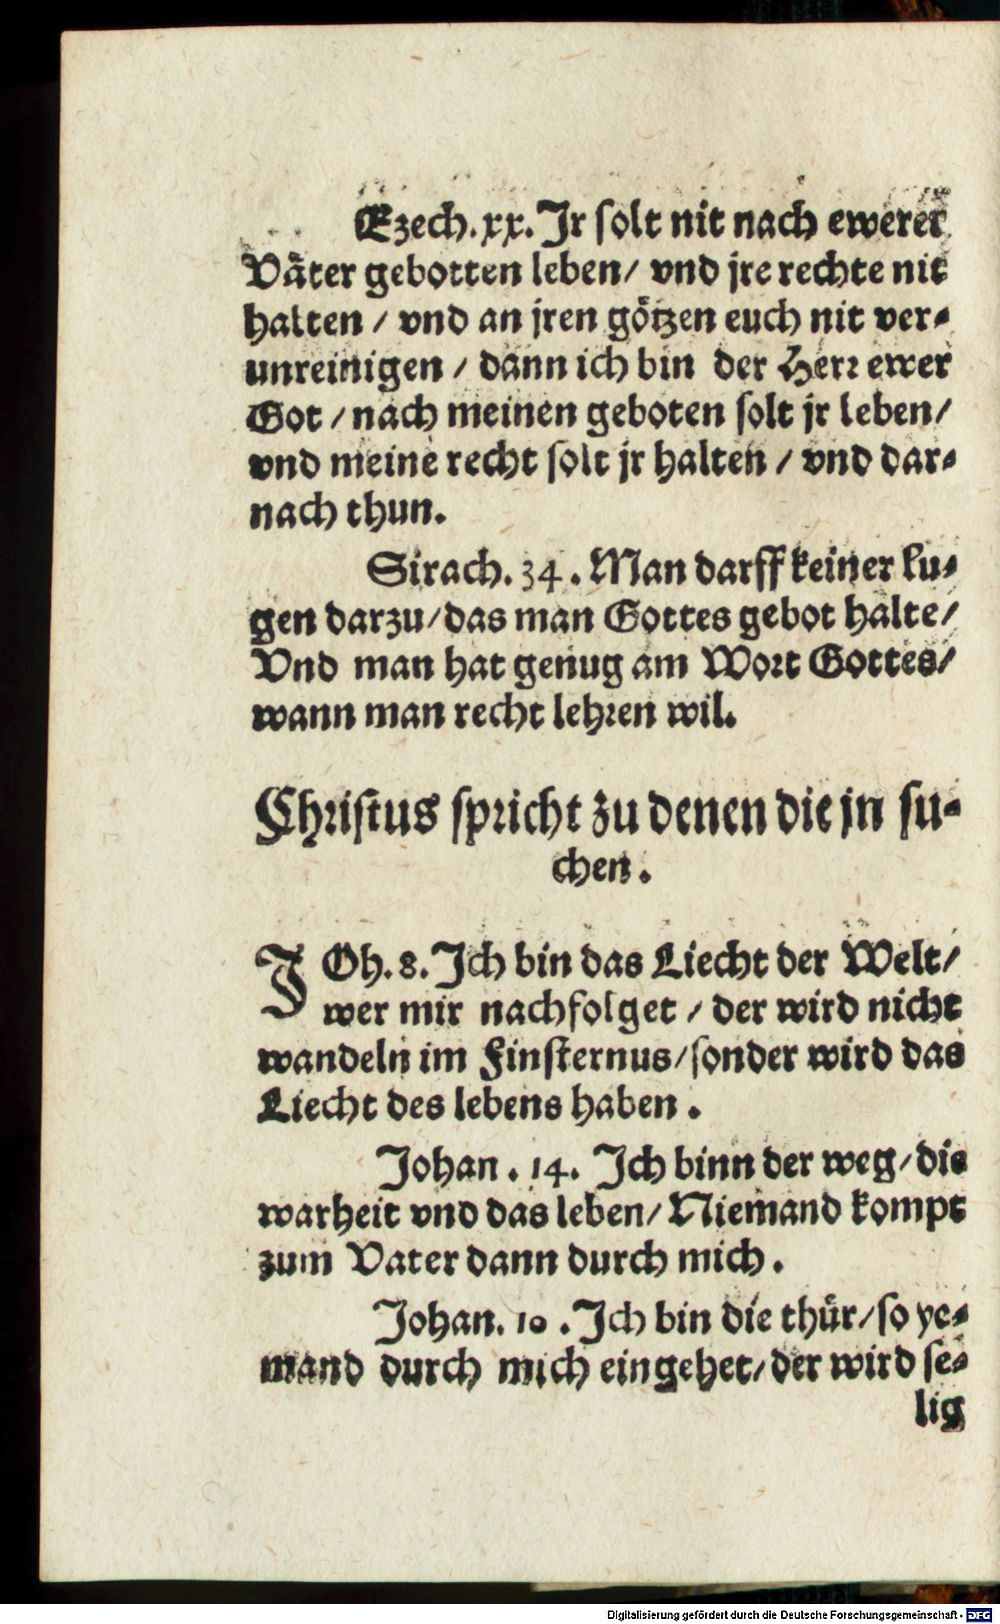 Ezech.xx. Jr solt nit nach ewerer
Väter gebotten leben/ vnd jre rechte nit
halten / vnd an jren götzen euch nit ver-
unreinigen / dann ich bin der Herr ewer
Got / nach meinen geboten solt jr leben/
vnd meine recht solt jr halten / vnd dar-
nach thun.
Sirach. 34. Man darff keiner Lu-
gen darzu/ das man Gottes gebot halte/
Vnd man hat genug am Wort Gottes/
wann man recht lehren wil.
Christus spricht zu denen die jn su-
chen.
JOh. 8. Jch bin das Liecht der Welt/
wer mir nachfolget / der wird nicht
wandeln im Finsternus/ sonder wird das
Liecht des lebens haben.
Johan. 14. Jch binn der weg/ die
warheit vnd das leben/ Niemand kompt
zum Vater dann durch mich.
Johan. 10. Jch bin die thür/ so ye-
mand durch mich eingehet/ der wird se-
lig
Digitalisierung gefördert durch die Deutsche Forschungsgemeinschaft - DFG